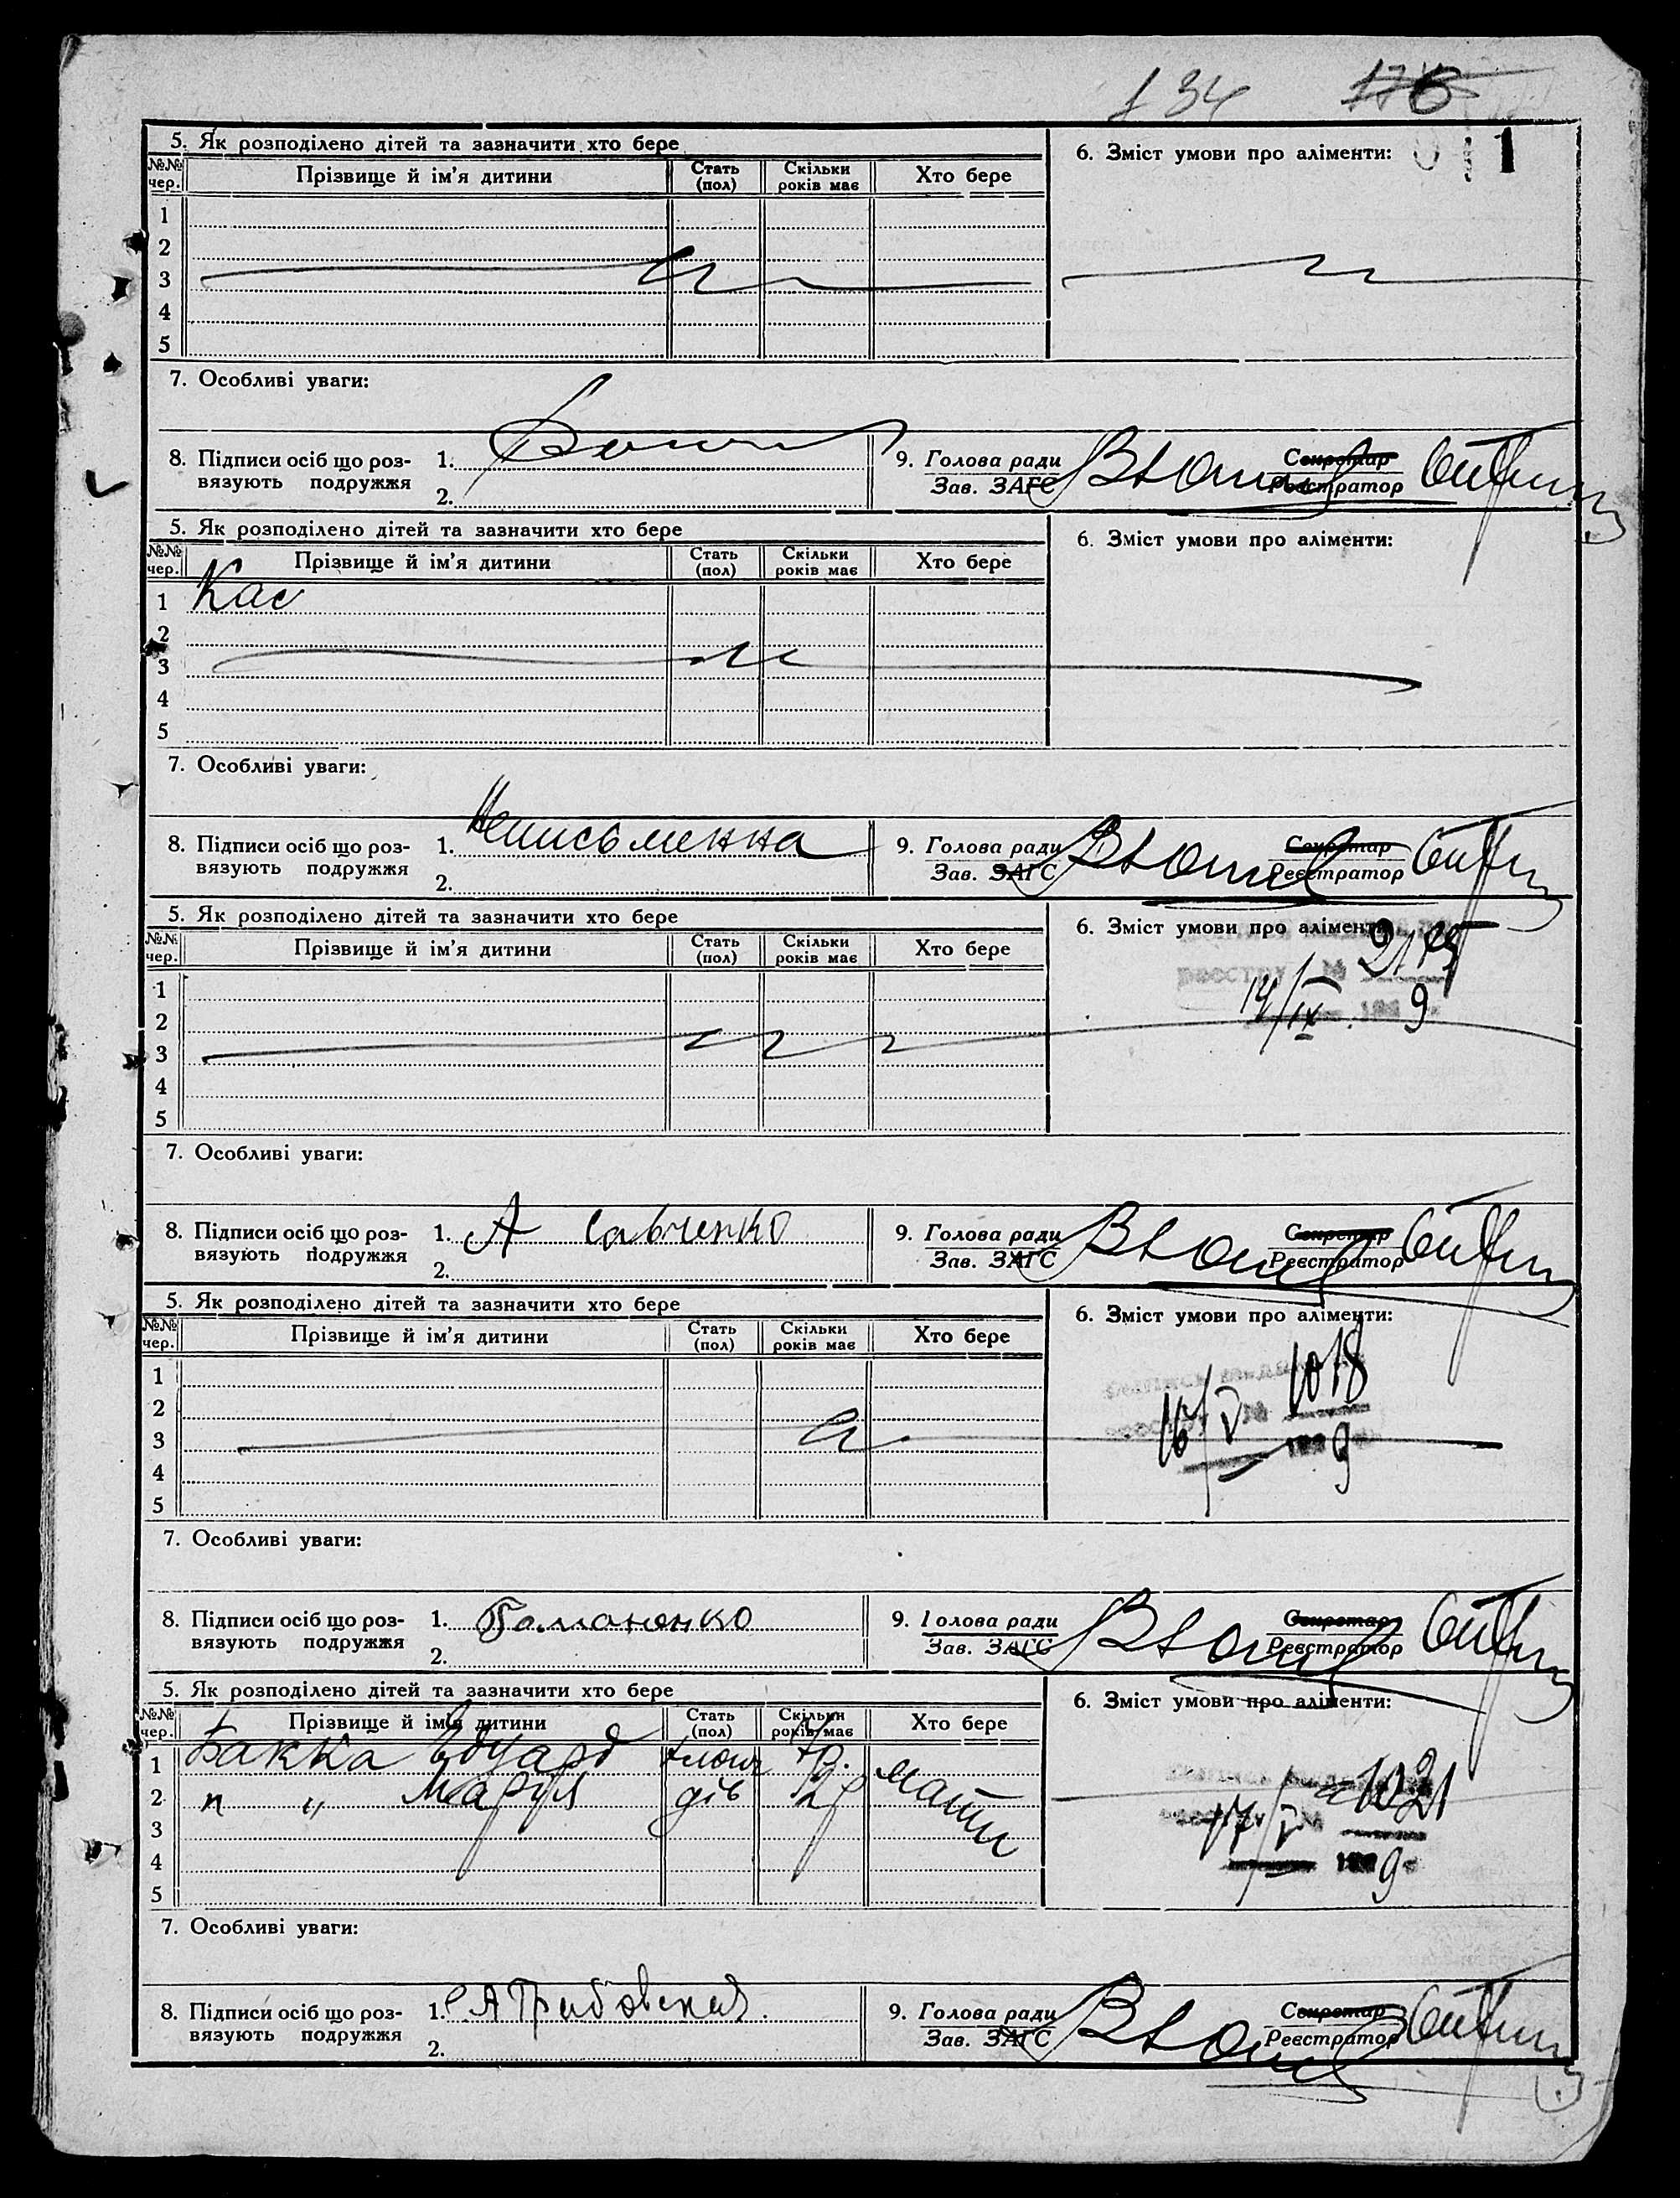 134 176
5. Як розподілено дітей та зазначити хто бере
6. Зміст умови про аліменти:
1
№№ чер. Прізвище й ім'я дитини Стать (пол) Скільки років має Хто бере
1
2
3
4
5
7. Особливі уваги:
8. Підписи осіб що роз-
вязують подружжя
1.
2.
9. Голова ради
Зав. ЗАГС
Секретар
Реєстратор
5. Як розподілено дітей та зазначити хто бере
6. Зміст умови про аліменти:
№№ чер. Прізвище й ім'я дитини Стать (пол) Скільки років має Хто бере
1 Кас
2
3
4
5
7. Особливі уваги:
8. Підписи осіб що роз-
вязують подружжя
1. Неписьменна
2.
9. Голова ради
Зав. ЗАГС
Секретар
Реєстратор
5. Як розподілено дітей та зазначити хто бере
6. Зміст умови про аліменти:
реєстру №
14/IX 9
№№ чер. Прізвище й ім'я дитини Стать (пол) Скільки років має Хто бере
1
2
3
4
5
7. Особливі уваги:
8. Підписи осіб що роз-
вязують подружжя
1. А Савченко
2.
9. Голова ради
Зав. ЗАГС
Секретар
Реєстратор
5. Як розподілено дітей та зазначити хто бере
6. Зміст умови про аліменти:
1018
16/V 9
№№ чер. Прізвище й ім'я дитини Стать (пол) Скільки років має Хто бере
1
2
3
4
5
7. Особливі уваги:
8. Підписи осіб що роз-
вязують подружжя
1.
2.
9. Голова ради
Зав. ЗАГС
Секретар
Реєстратор
5. Як розподілено дітей та зазначити хто бере
6. Зміст умови про аліменти:
1021
17/V 9
№№ чер. Прізвище й ім'я дитини Стать (пол) Скільки років має Хто бере
1 Бакка Едуард хлоп 7р. мати
2 " " Марія дів 2р
3
4
5
7. Особливі уваги:
8. Підписи осіб що роз-
вязують подружжя
1.
2.
9. Голова ради
Зав. ЗАГС
Секретар
Реєстратор